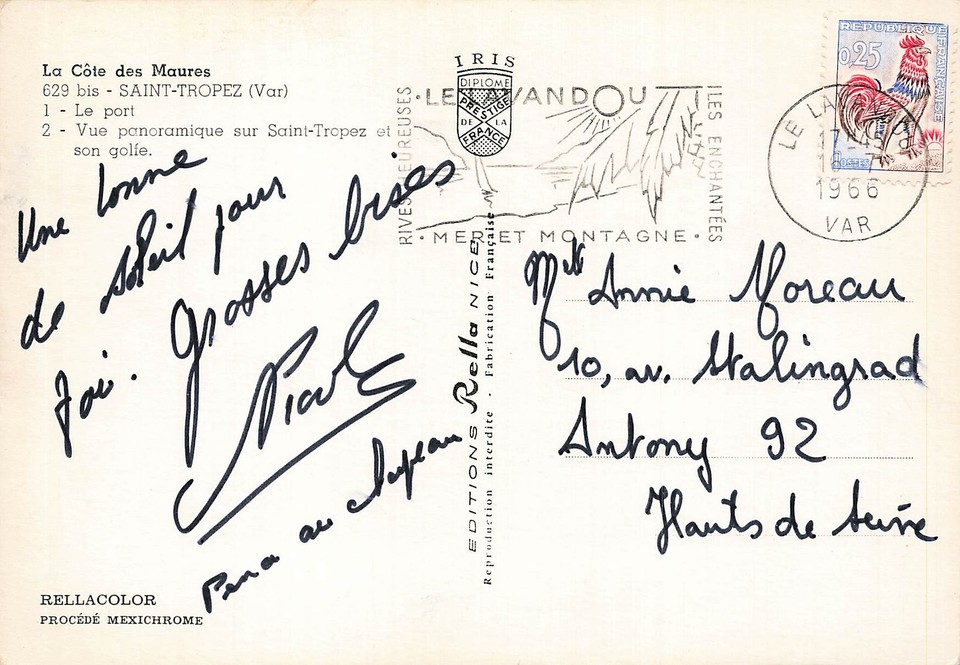 La Côte des Maures
629 bis - SAINT-TROPEZ (Var)
1 - Le port
2 - Vue panoramique sur Saint-Tropez et
son golfe.
Une tonne
de soleil pour
Toi. Grosses bises
Nicole
Pena au chapeau
RELLACOLOR
PROCÉDÉ MEXICHROME
IRIS
DIPLOME
PRESTIGE
DE LA
FRANCE
EDITIONS Rella NICE
Reproduction interdite - Fabrication Française
RIVES HEUREUSES
• LE LAVANDOU
ILES ENCHANTÉES
• MER ET MONTAGNE •
REPUBLIQUE FRANÇAISE
0,25
POSTES
LE LAVANDOU
17-45
1966
VAR
Mlle Annie Moreau
10, av. Stalingrad
Antony 92
Hauts de Seine